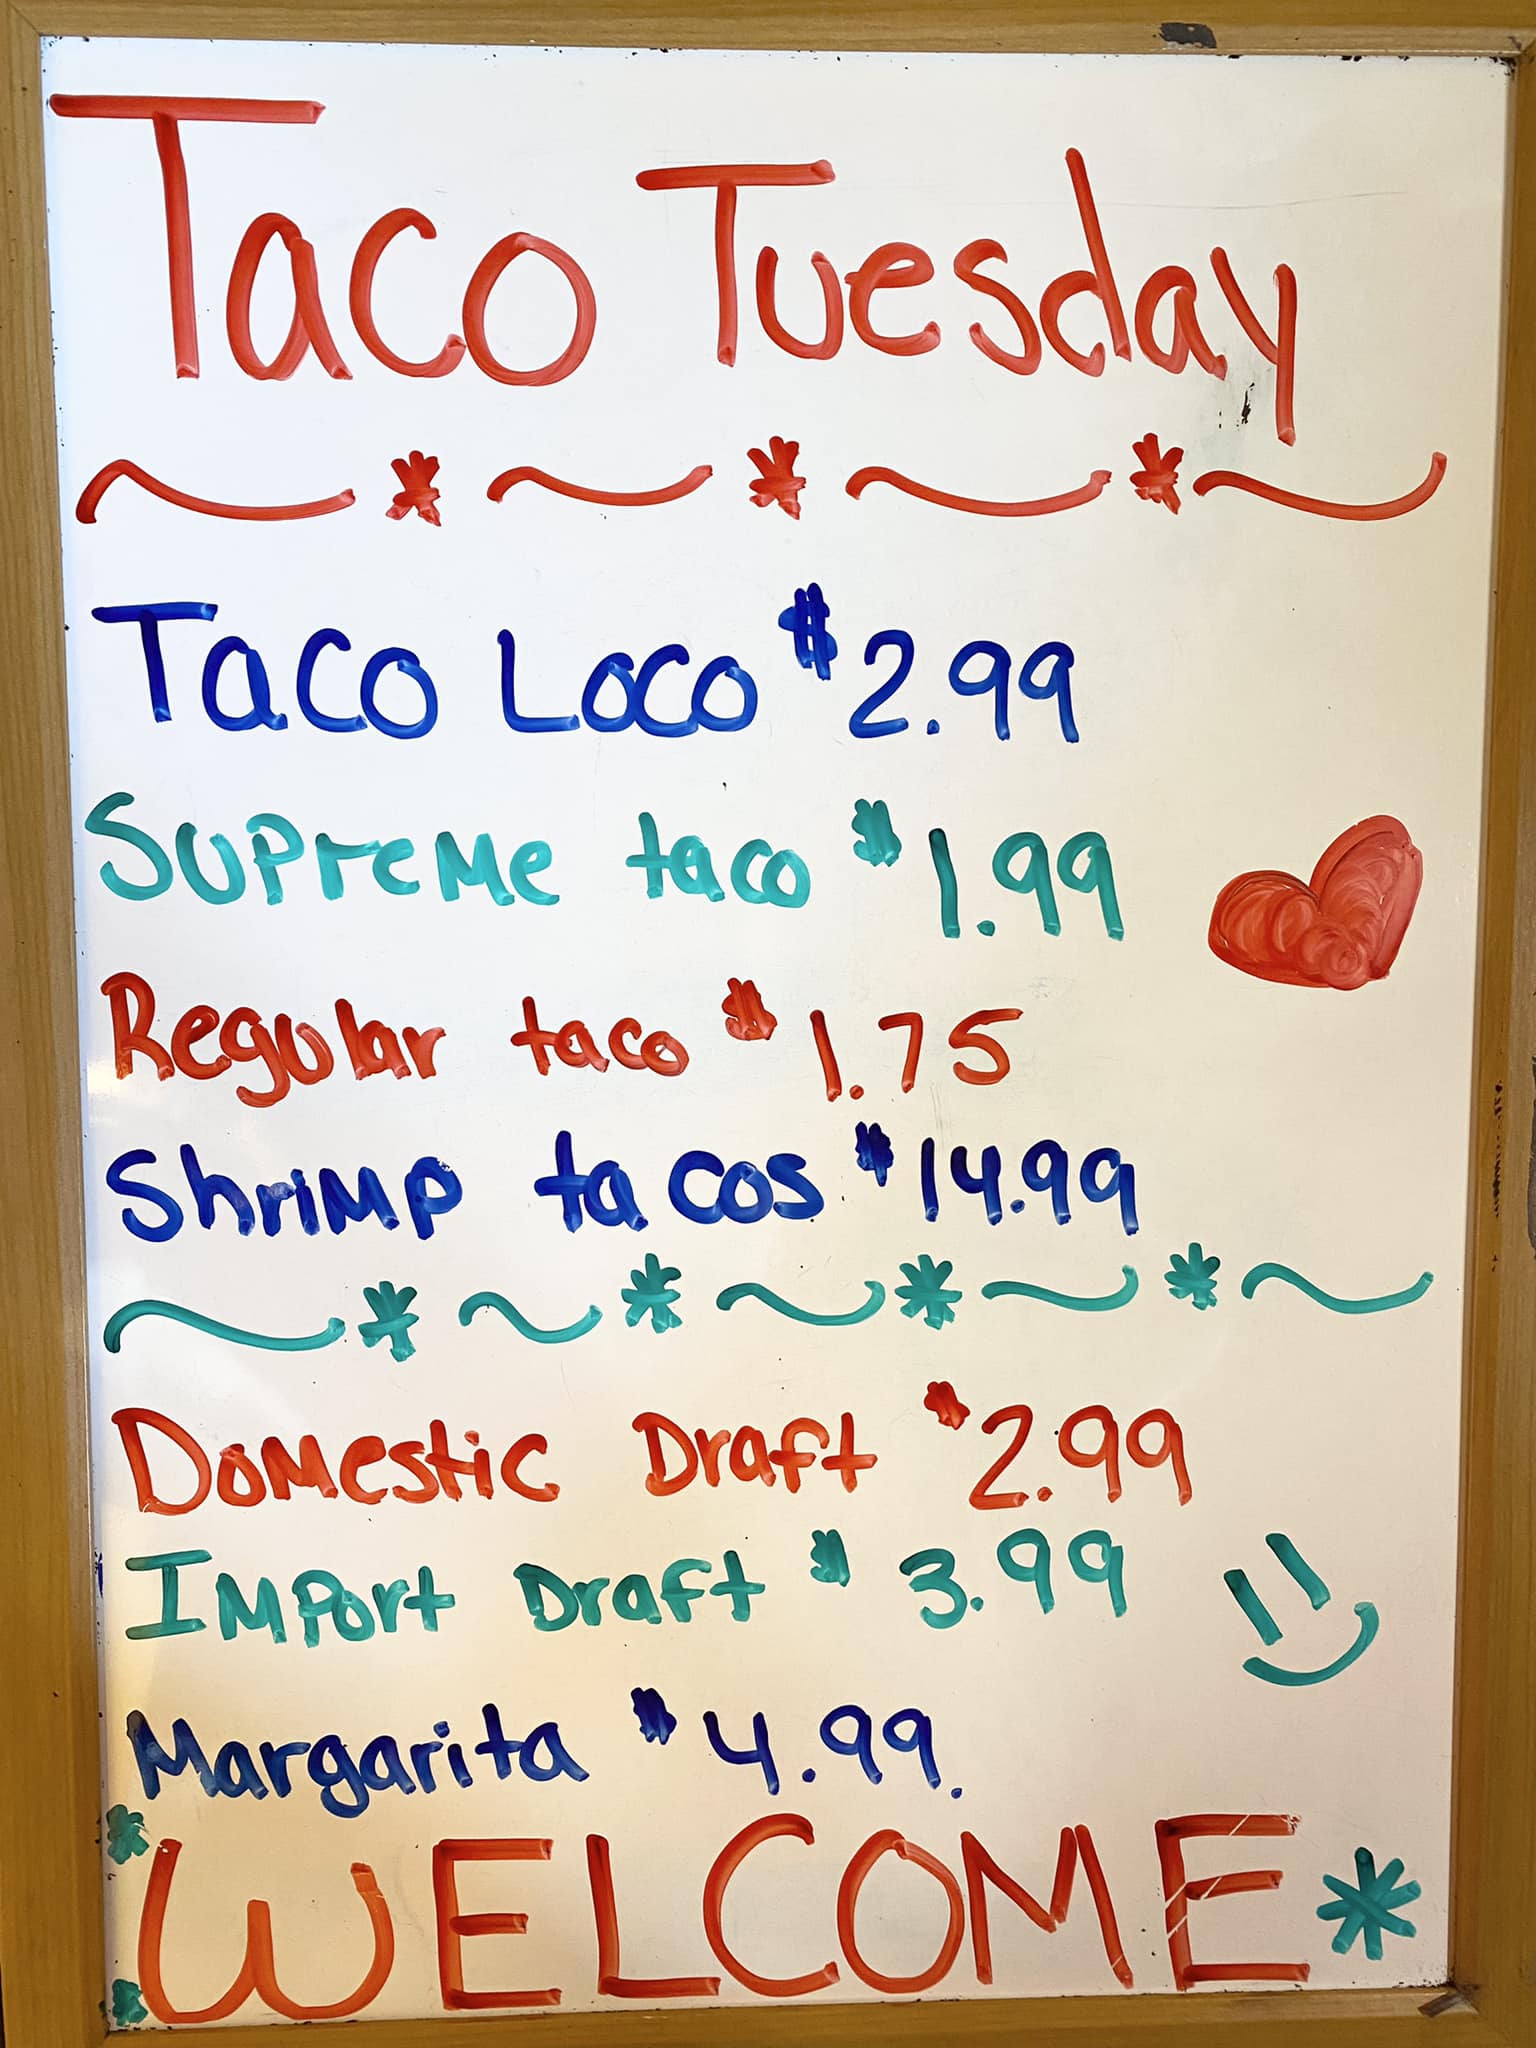 Taco Tuesday
Taco Loco $2.99
Supreme taco $1.99
Regular taco $1.75
Shrimp tacos $14.99
Domestic Draft $2.99
Import Draft $3.99
Margarita $4.99.
WELCOME